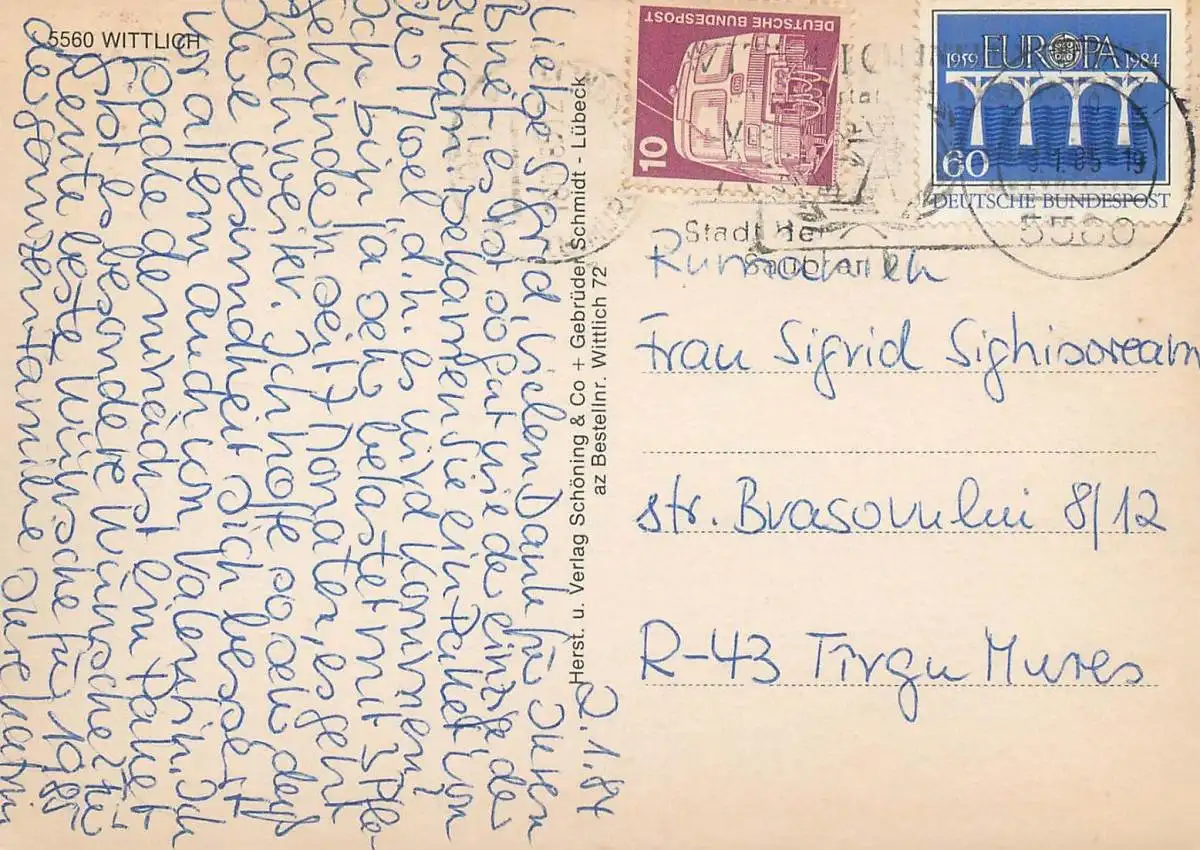 5560 WITTLICH
2.1.84
Liebe Sigrid, vielen Dank für Ihren
Brief, es ist so gut wie der einzige der
ankam. Bekommen Sie ein Paket von
Noel d.h. es wird kommen,
Ich bin ja sehr belastet mit 3 Pfle-
gekindern seit 7 Monaten, es geht
noch weiter. Ich hoffe so sehr daß
Ihre Gesundheit sich bessert
vor allem auch von Valentin. Ich
packe demnächst ein Paket
Gibt es besondere Wünsche? Für
heute beste Wünsche für 1985
der ganzen Familie Ihre
Herst. u. Verlag Schöning & Co + Gebrüder Schmidt - Lübeck
az Bestellnr. Wittlich 72
DEUTSCHE BUNDESPOST
10
1959 EUROPA 1984
60
DEUTSCHE BUNDESPOST
Stadt der
5560
Rumänien
Frau Sigrid Sighisorean
str. Brasovului 8/12
R-43 Tîrgu Mures